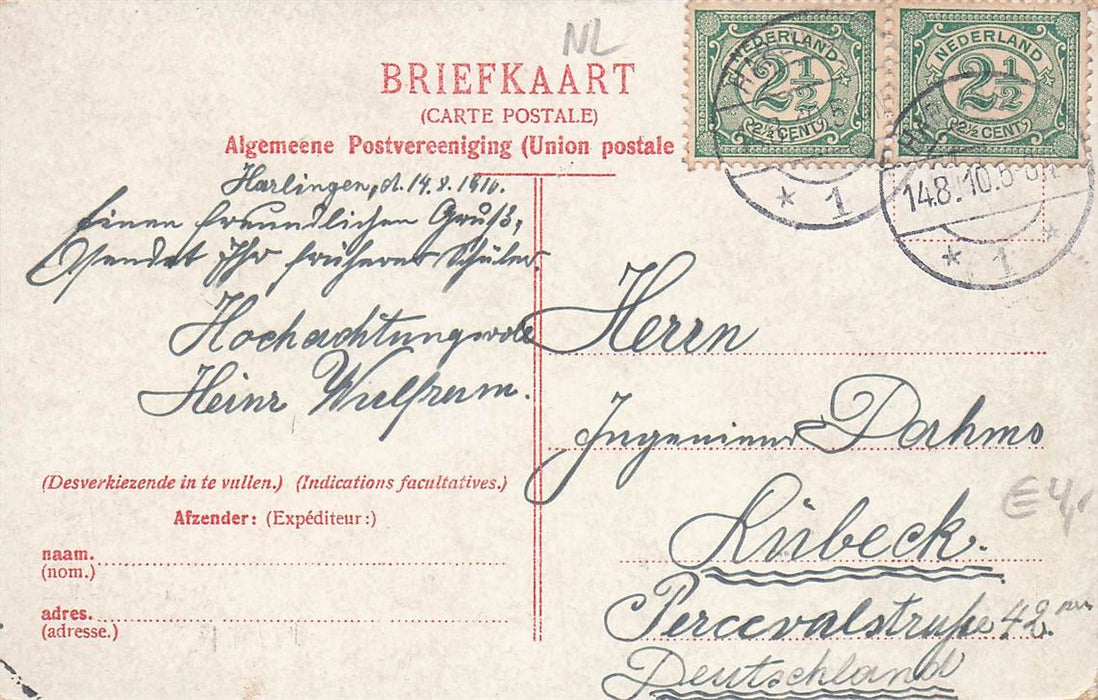 NL
BRIEFKAART
(CARTE POSTALE)
Algemeene Postvereeniging (Union postale
NEDERLAND
2½
2½ CENT
NEDERLAND
2½
2½ CENT
* 1
14.8.10.5-
* 1 *
Harlingen, d. 14.8.1910.
Einen freundlichen Gruß,
sendet Ihr früherer Schüler
Hochachtungsvoll
Heinr Wulfram.
Herrn
Ingenieur Dahms
Lübeck.
Percevalstraße 42
Deutschland
(Desverkiezende in te vullen.) (Indications facultatives.)
Afzender: (Expéditeur:)
naam.
(nom.)
adres.
(adresse.)
€4,-